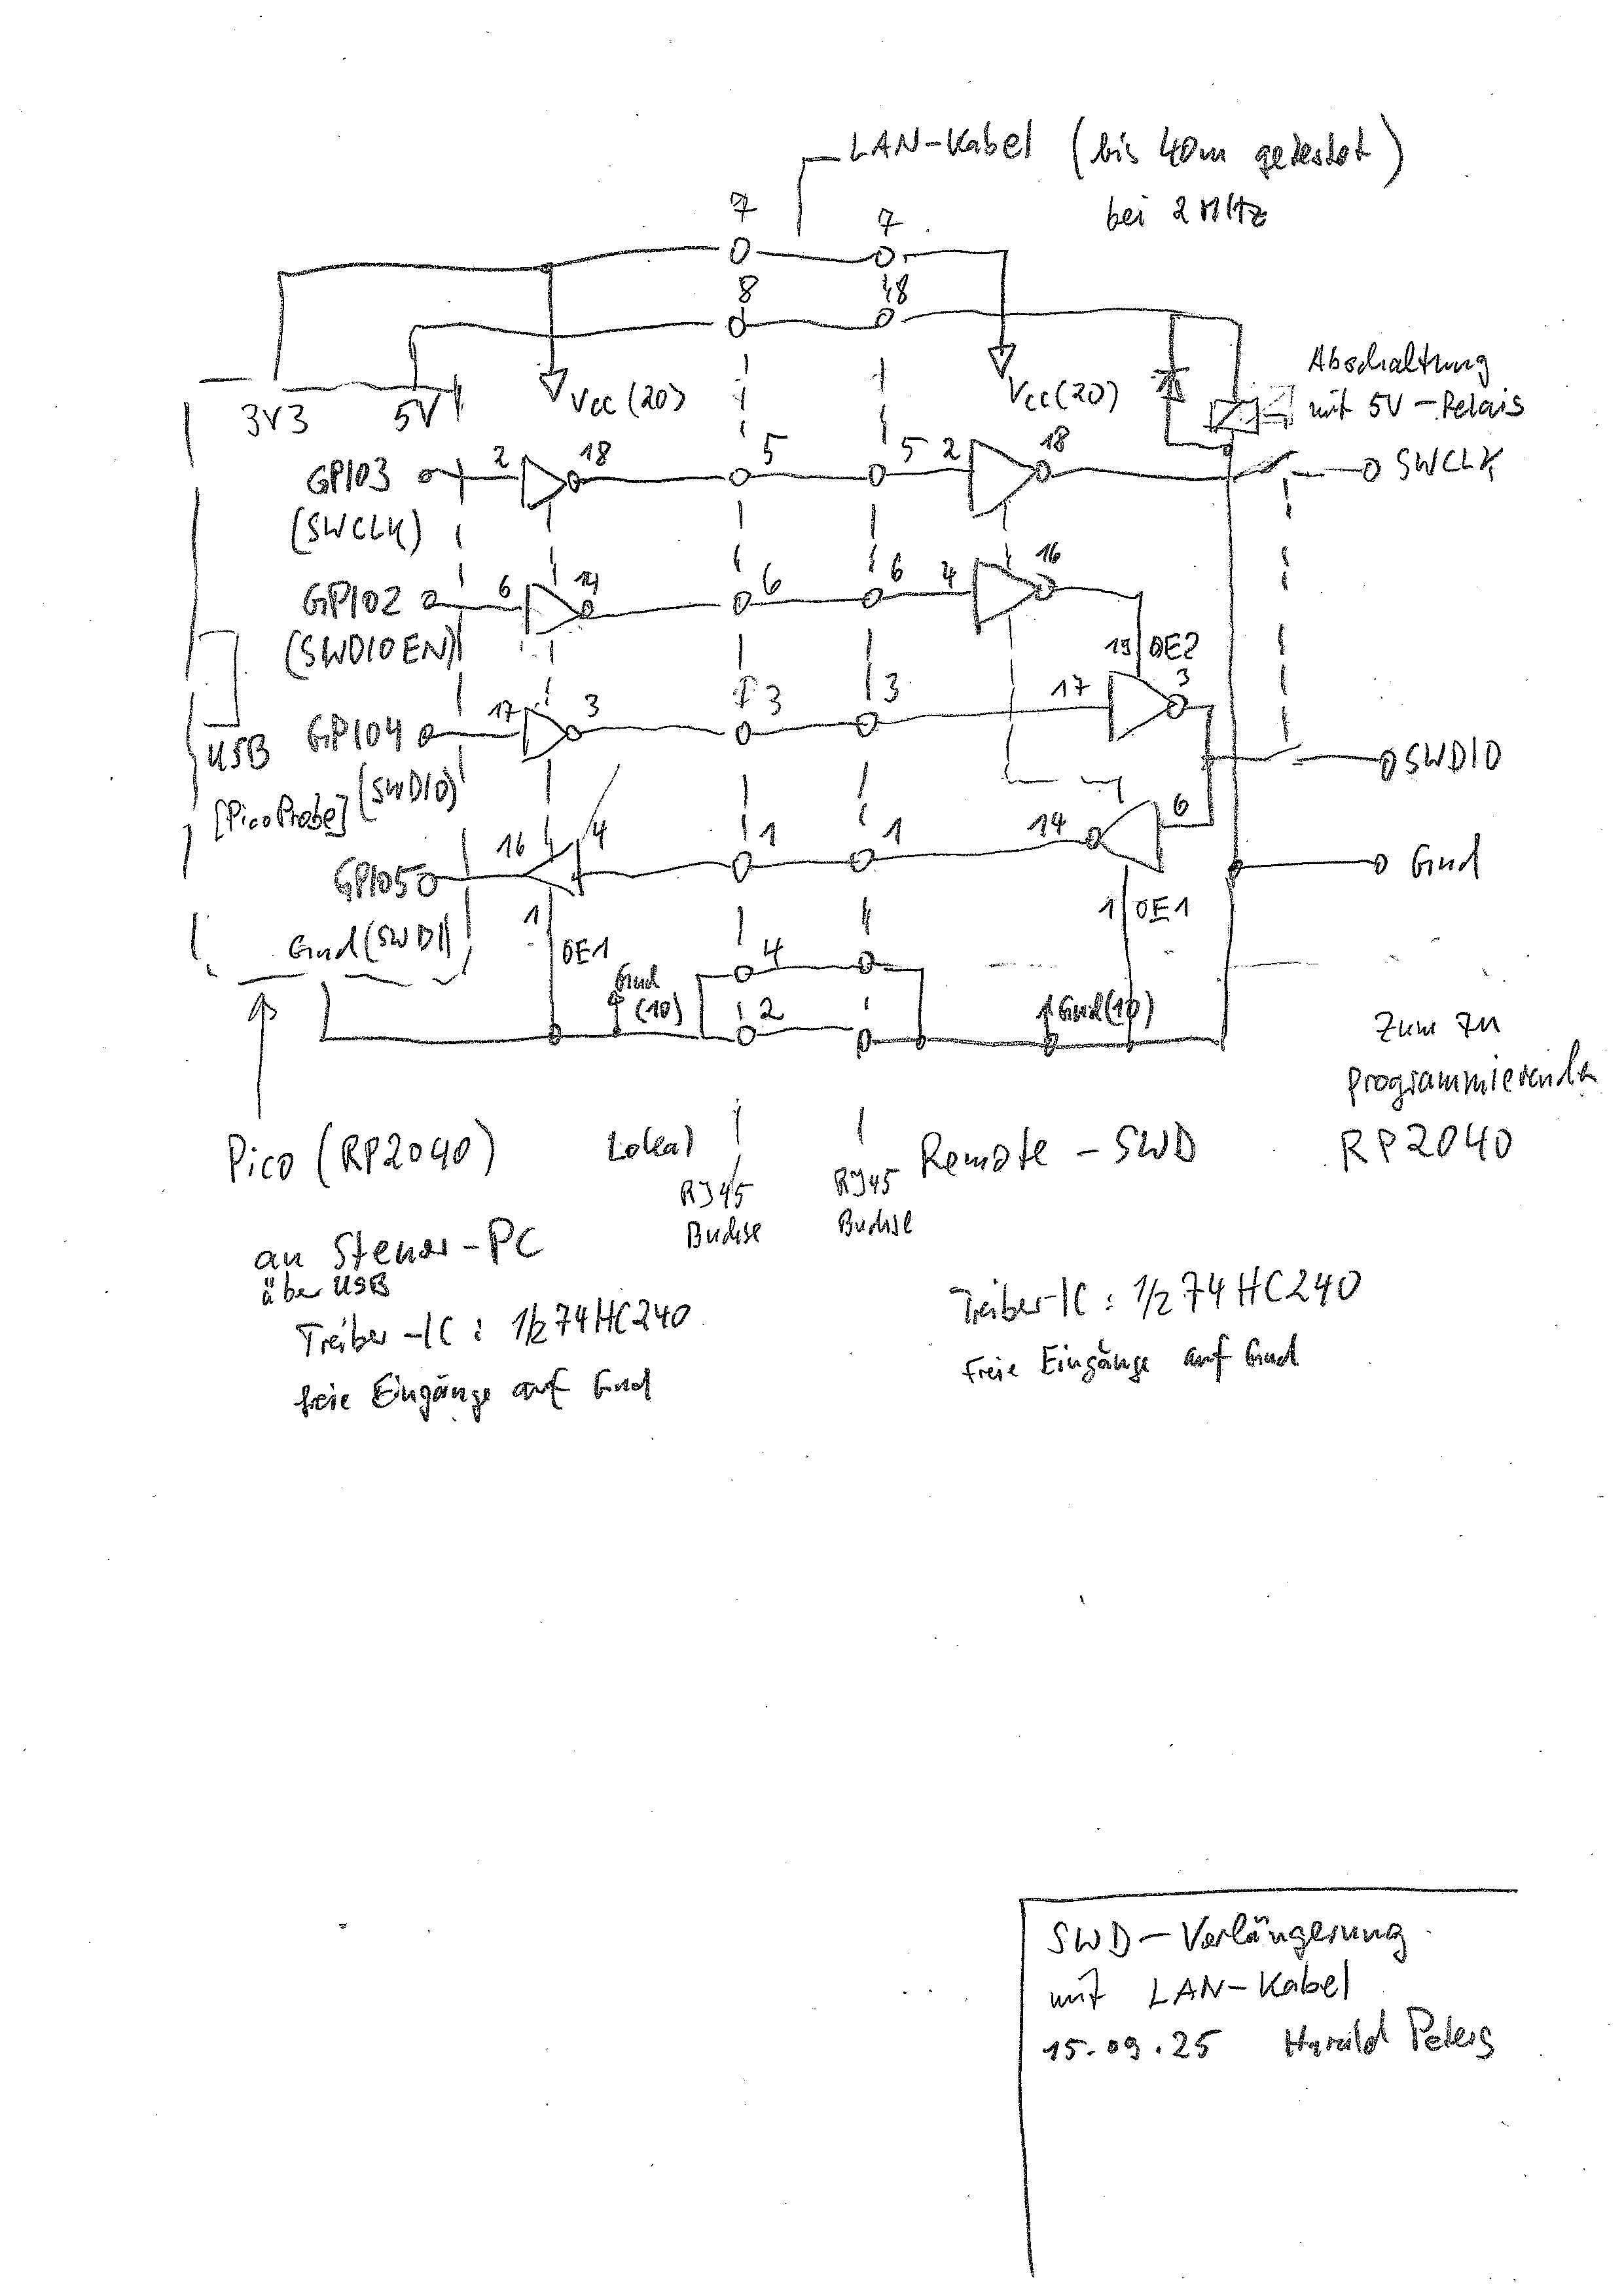 LAN-Kabel (bis 40m getestet)
bei 2 MHz
7 7
8 18
3V3 5V Vcc (20) Vcc (20)
Abschaltung
mit 5V-Relais
GPIO3 2 18 5 5 2 18 SWCLK
(SWCLK)
GPIO2 6 14 6 6 4 16
(SWDIO EN)
19 OE2
GPIO4 17 3 3 3 17 3
(SWDIO)
USB
SWDIO
[PicoProbe]
GPIO5 16 4 1 1 14 6
Gnd
1 OE1 1 OE1
Gnd (SWDI)
4
Gnd
(10)
2
Gnd(10)
Zum zu
programmierenden
RP2040
Pico (RP2040) Lokal Remote - SWD
RJ45
Buchse
RJ45
Buchse
an Steuer-PC
über USB
Treiber-IC : 1/2 74HC240
freie Eingänge auf Gnd
Treiber-IC : 1/2 74HC240
Freie Eingänge auf Gnd
SWD-Verlängerung
mit LAN-Kabel
15.09.25 Harald Peters